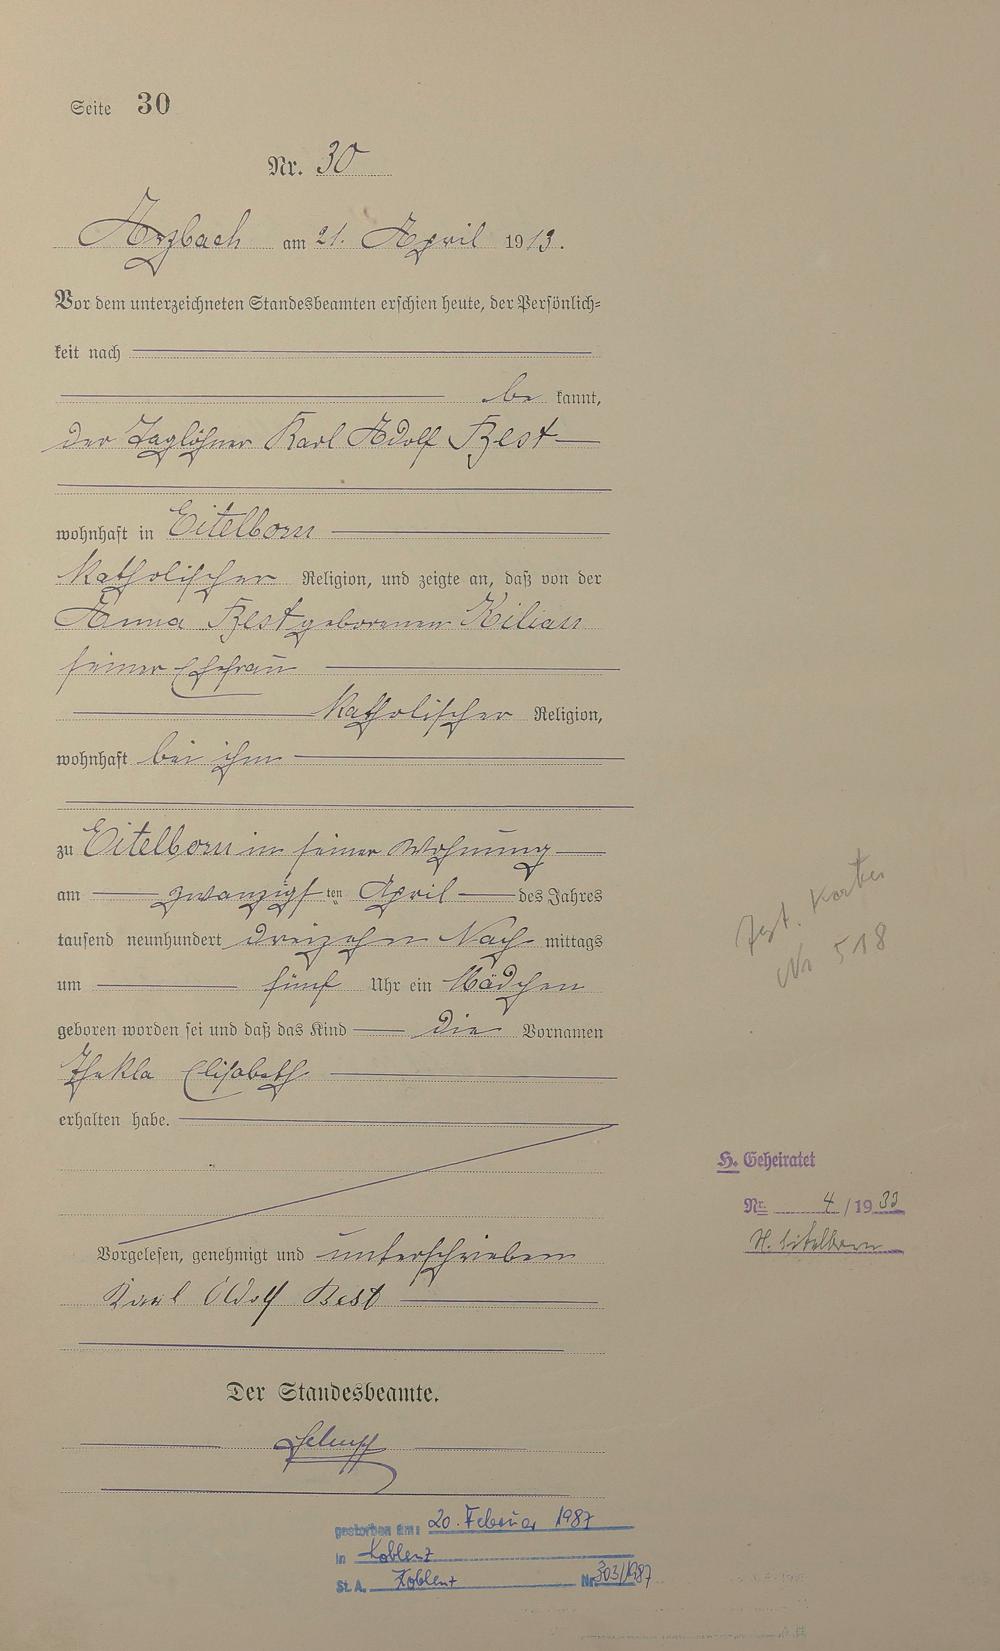 Seite 30
Nr. 30
Arzbach am 21. April 1913.
Vor dem unterzeichneten Standesbeamten erschien heute, der Persönlich=
keit nach
be kannt,
der Taglöhner Karl Adolf Best
wohnhaft in Eitelborn
katholischer Religion, und zeigte an, daß von der
Anna Best geborenen Kilian
seiner Ehefrau
katholischer Religion,
wohnhaft bei ihm
zu Eitelborn in seiner Wohnung
am zwanzigsten April des Jahres
tausend neunhundert dreizehn Nach mittags
um fünf Uhr ein Mädchen
geboren worden sei und daß das Kind die Vornamen
Thekla Elisabeth
erhalten habe.
Vorgelesen, genehmigt und unterschrieben
Karl Adolf Best
Der Standesbeamte.
gestorben am: 20. Februar 1987
in Koblenz
St. A. Koblenz Nr. 303/1987
H. Geheiratet
Nr. 4/1933
Eitelborn
Nr 518